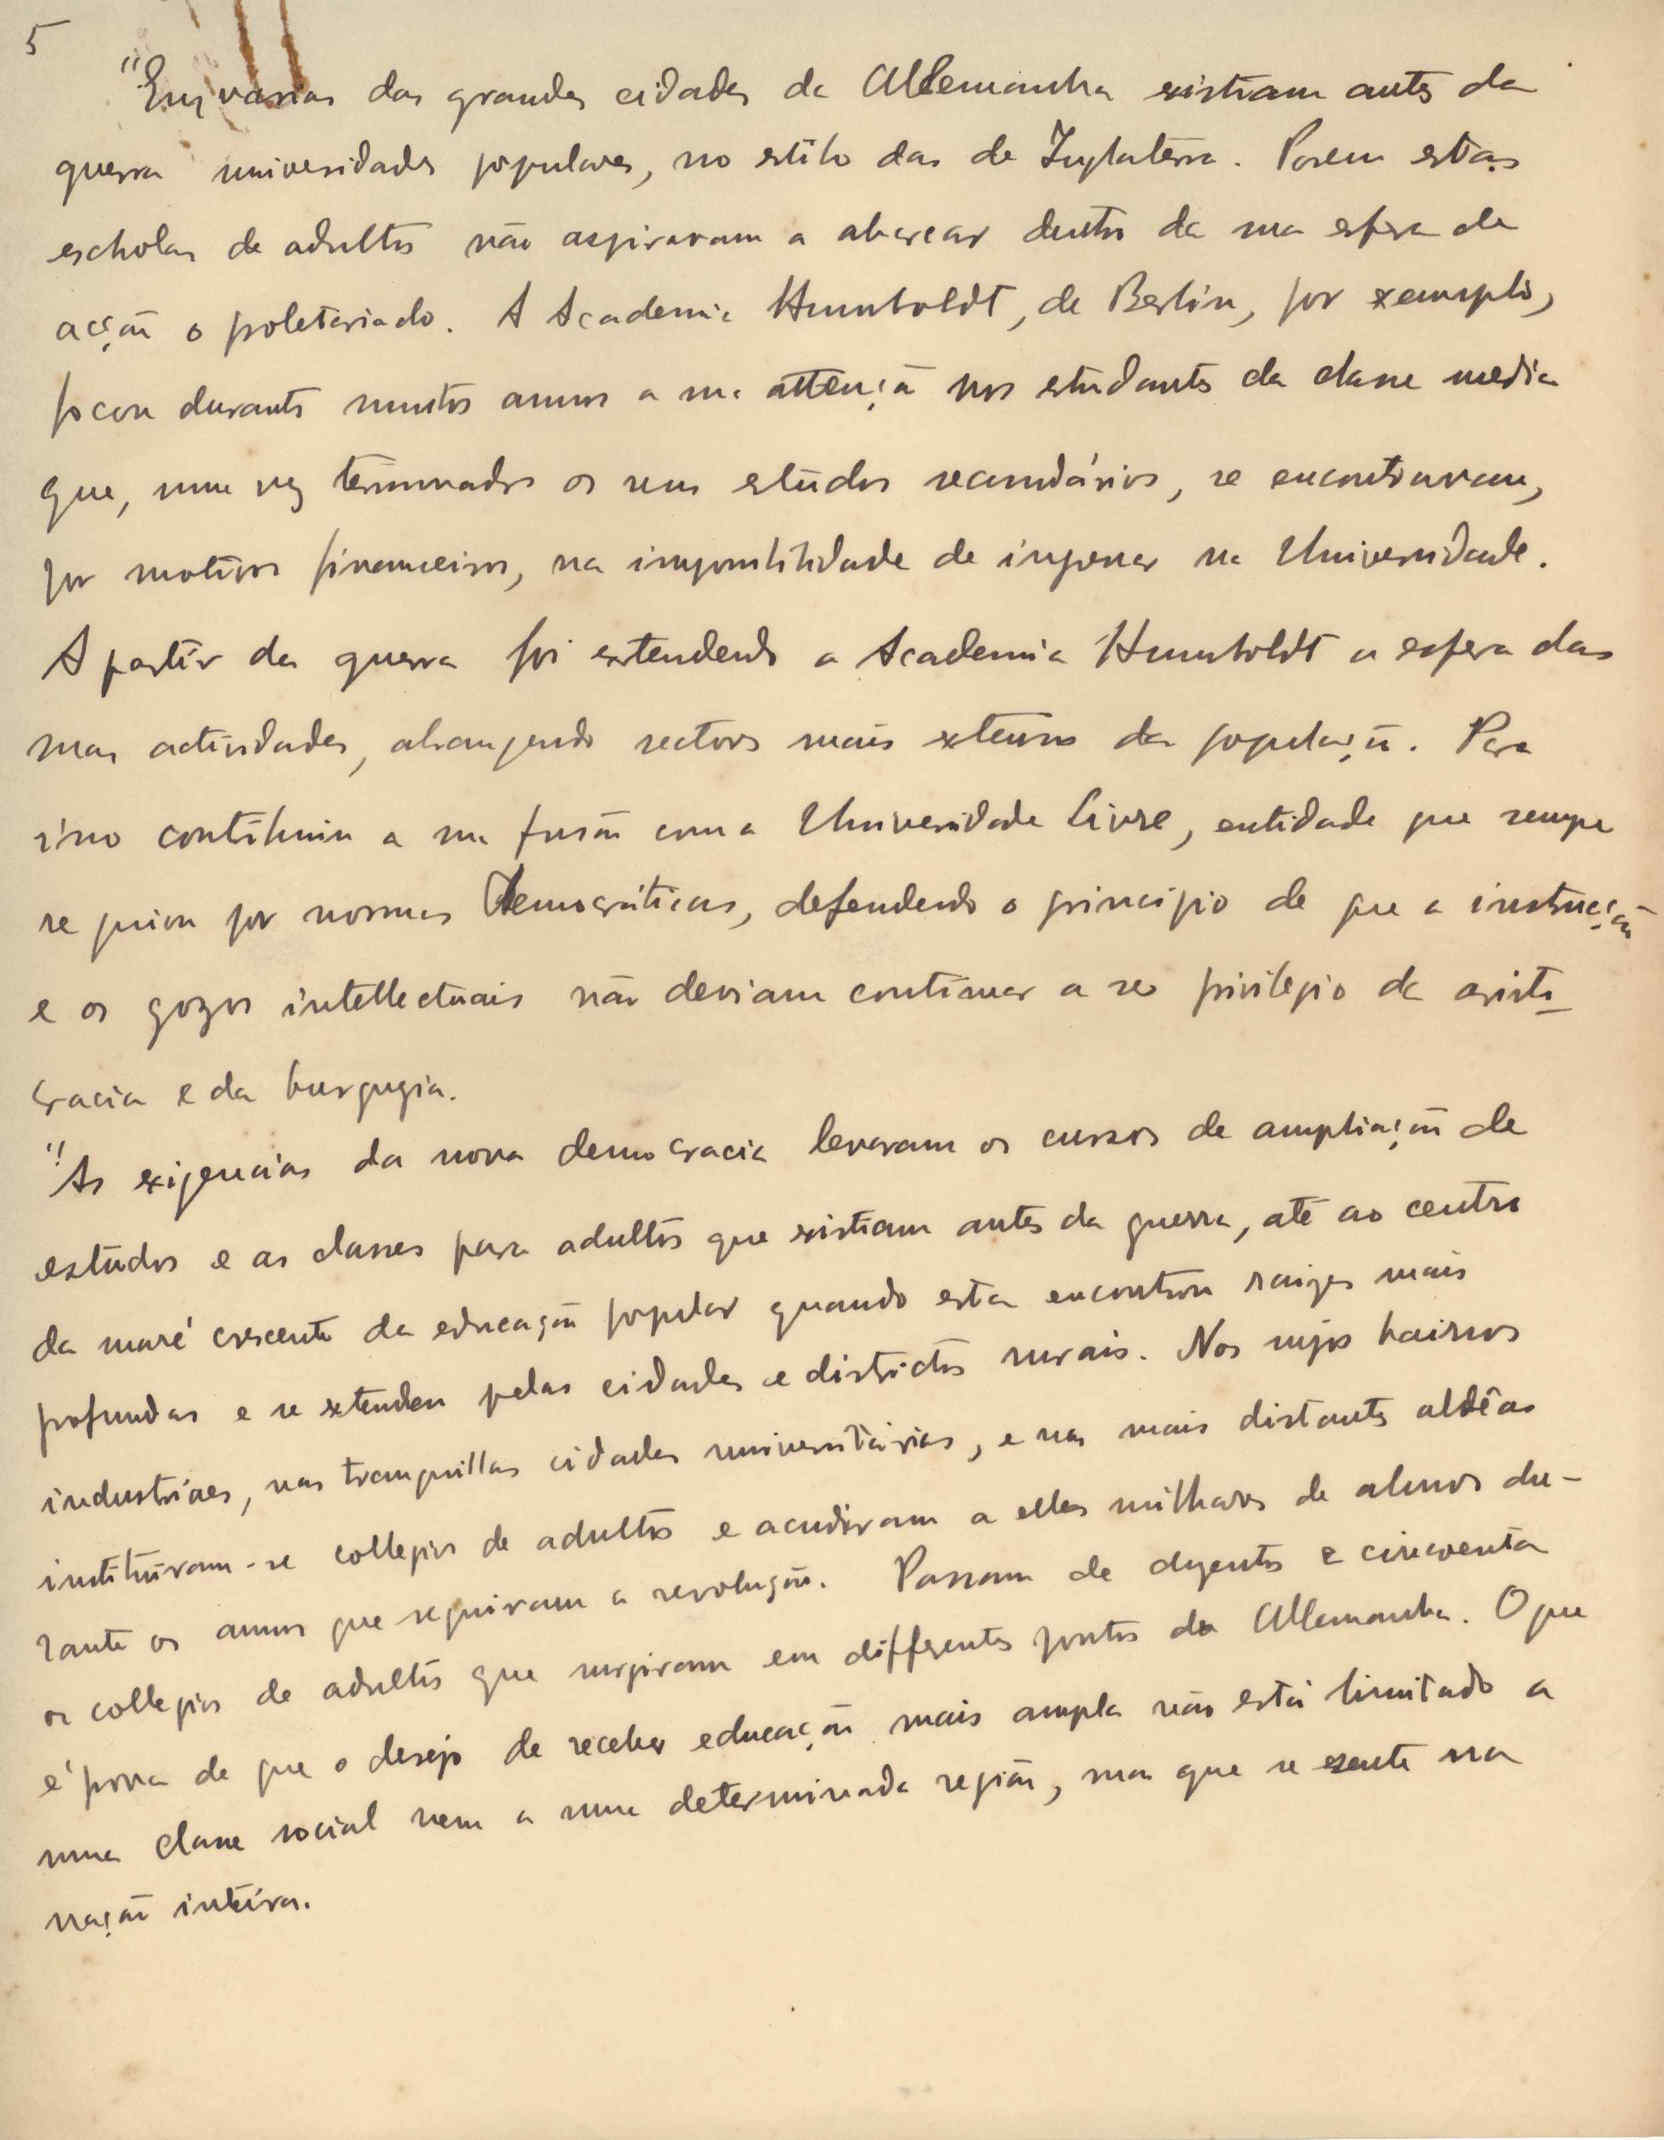 5
"Em varias das grandes cidades da Allemanha existiam antes da
guerra universidades populares, no estilo das de Inglaterra. Porem estas
escholas de adultos não aspiravam a abarcar dentro da sua esfera de
acção o proletariado. A Academia Humboldt, de Berlin, por exemplo,
focou durante muitos annos a sua attenção nos estudantes da classe media
que, uma vez terminados os seus estudos secundários, se encontravam,
por motivos financeiros, na impossibilidade de ingressar na Universidade.
A partir da guerra foi extendendo a Academia Humboldt a esfera das
suas actividades, abrangendo sectores mais extensos da população. Para
isso contribuiu a sua fusão com a Universidade Livre, entidade que sempre
se guiou por normas democráticas, defendendo o principio de que a instrucção
e os gozos intellectuais não deviam continuar a ser privilegio da aristo-
cracia e da burguezia.
"As exigencias da nova democracia levaram os cursos de ampliação de
estudos e as classes para adultos que existiam antes da guerra, até ao centro
da maré crescente da educação popular quando esta encontrou raizes mais
profundas e se extendeu pelas cidades e districtos rurais. Nos sujos bairros
industriaes, nas tranquillas cidades universitárias, e nas mais distantes aldêas
instituiram-se collegios de adultos e acudiram a elles milhares de alunos du-
rante os annos que seguiram a revolução. Passam de duzentos e cincoenta
os collegios de adultos que surgiram em differentes pontos da Allemanha. O que
é prova de que o desejo de receber educação mais ampla não está limitado a
uma classe social nem a uma determinada região, mas que se sente na
nação inteira.